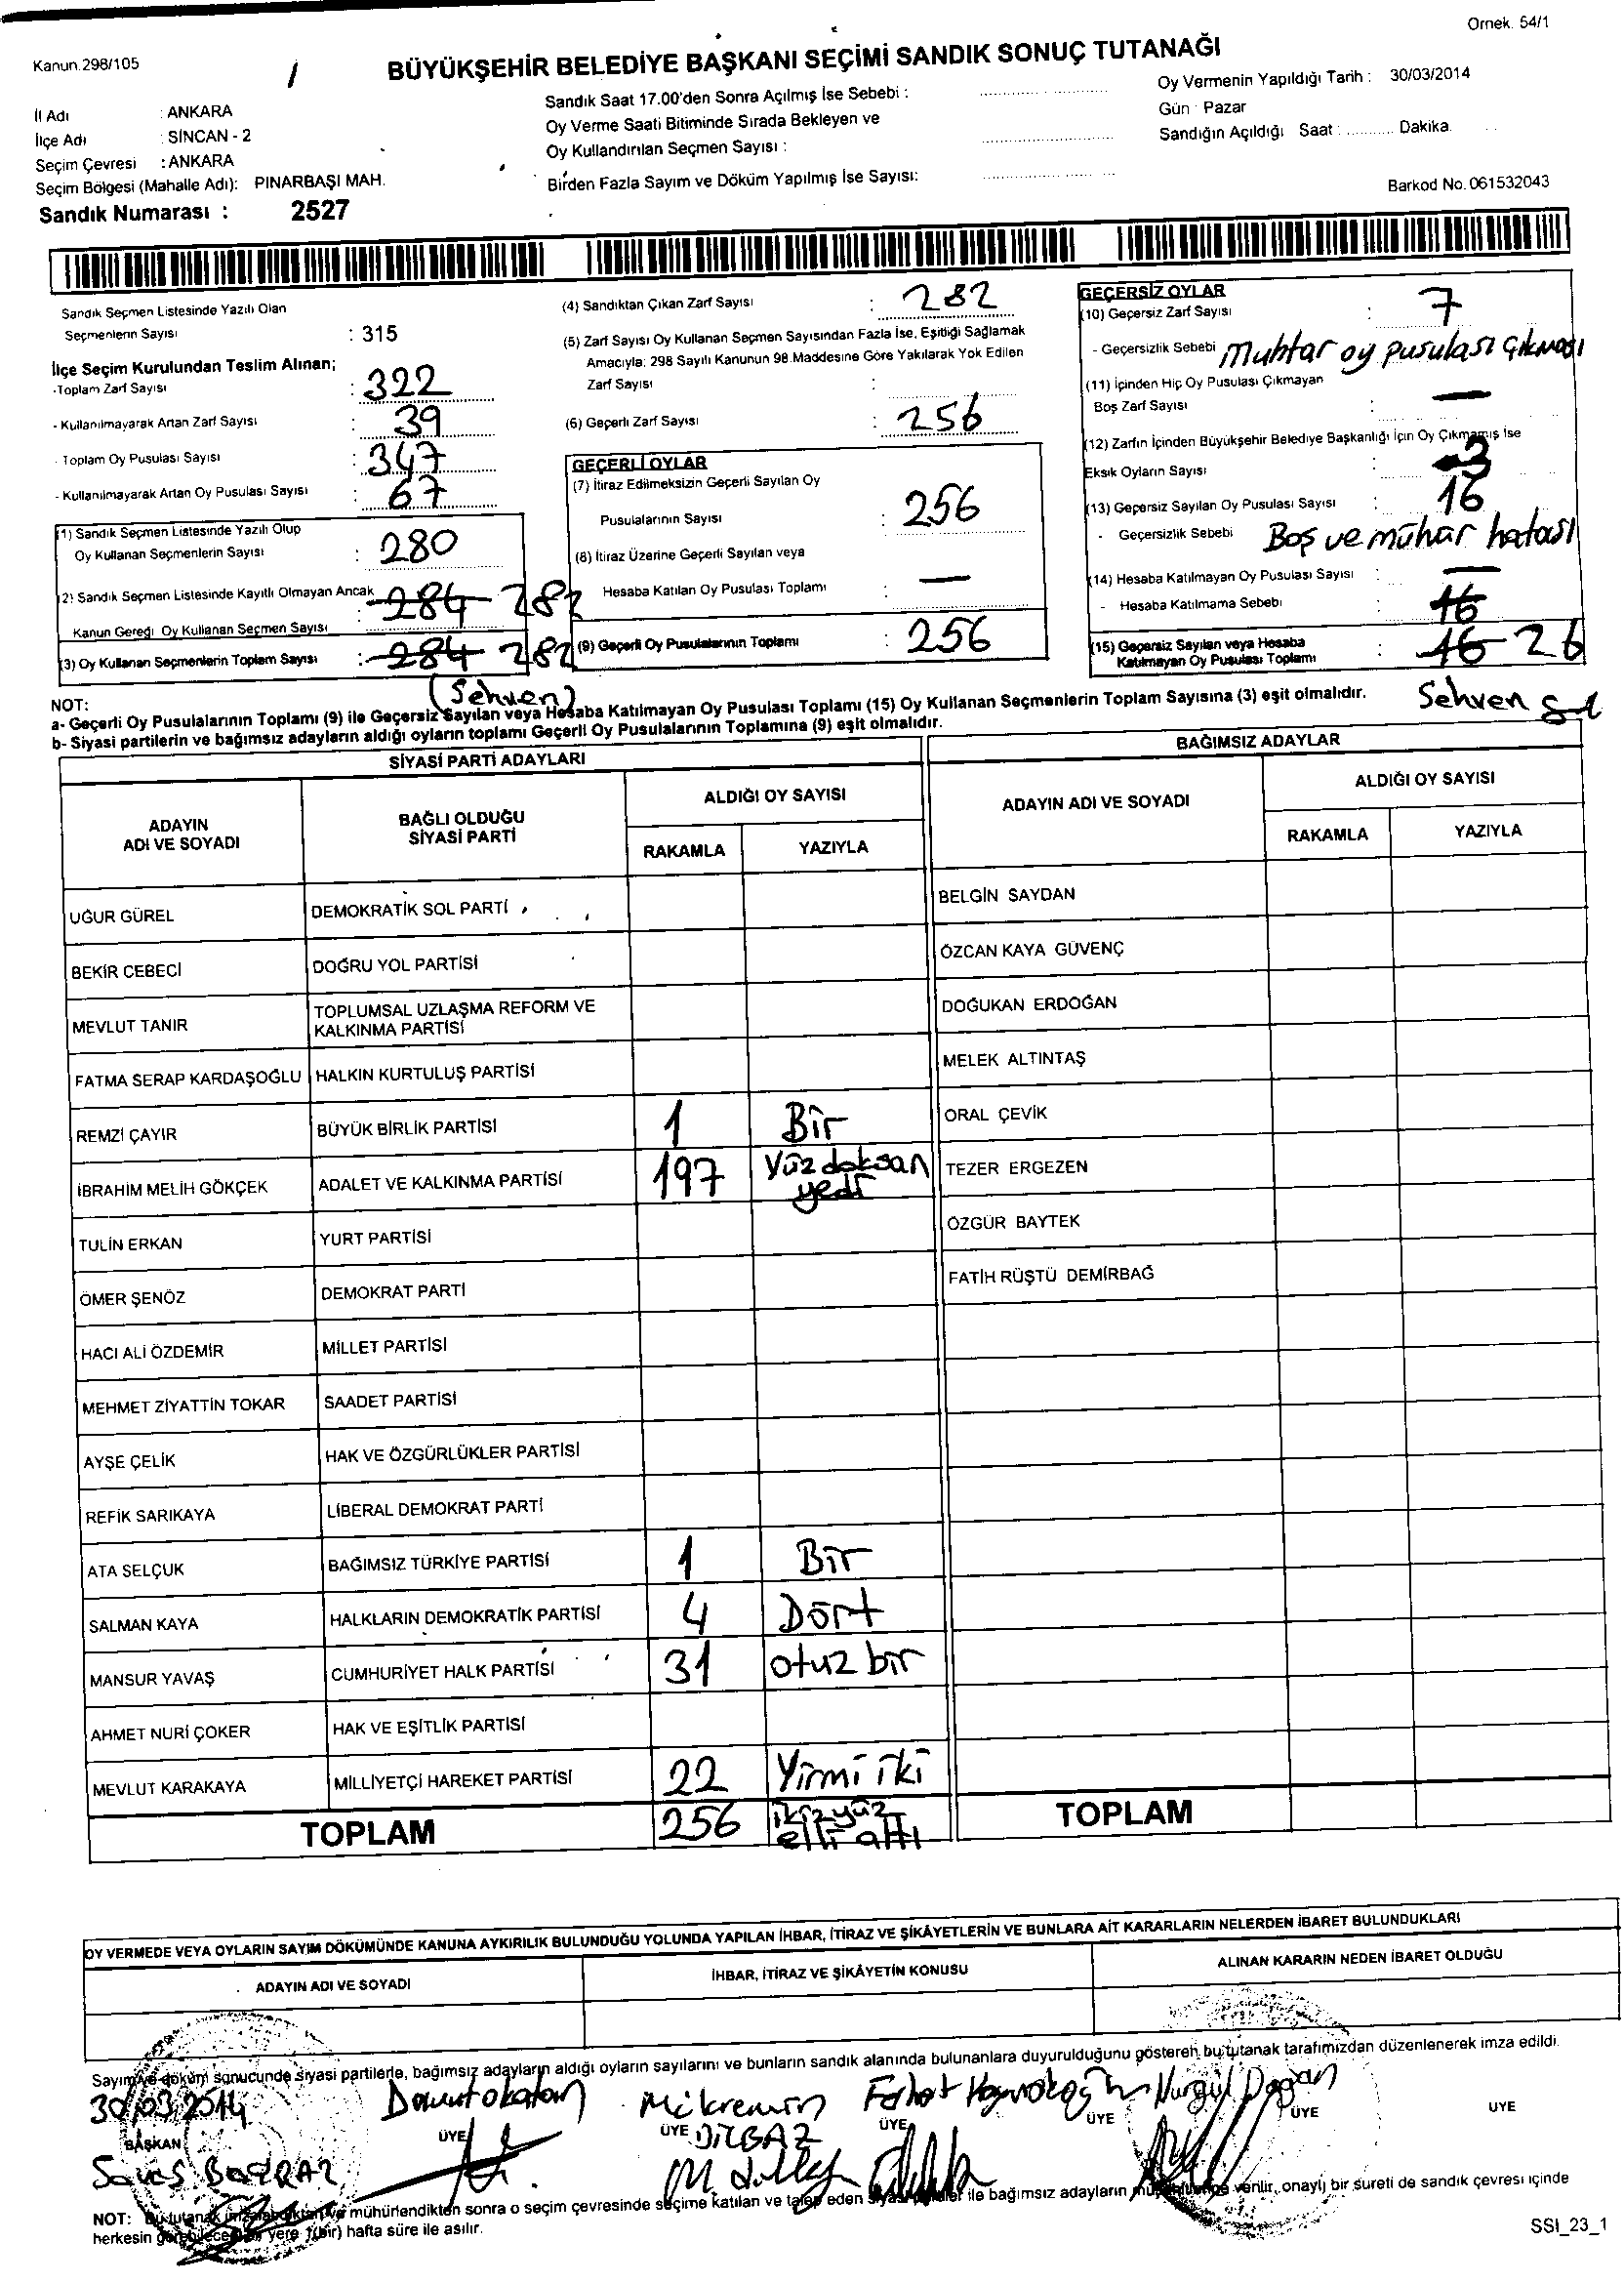 Ornek. 54/1
Kanun.298/105
BÜYÜKŞEHİR BELEDİYE BAŞKANI SEÇİMİ SANDIK SONUÇ TUTANAĞI
İl Adı : ANKARA
İlçe Adı : SİNCAN - 2
Seçim Çevresi : ANKARA
Seçim Bölgesi (Mahalle Adı): PINARBAŞI MAH.
Sandık Numarası : 2527
Sandık Saat 17.00'den Sonra Açılmış İse Sebebi :
Oy Verme Saati Bitiminde Sırada Bekleyen ve
Oy Kullandırılan Seçmen Sayısı :
Birden Fazla Sayım ve Döküm Yapılmış İse Sayısı:
Oy Vermenin Yapıldığı Tarih : 30/03/2014
Gün : Pazar
Sandığın Açıldığı Saat : ........... Dakika.
Barkod No.061532043
Sandık Seçmen Listesinde Yazılı Olan
Seçmenlerin Sayısı : 315
İlçe Seçim Kurulundan Teslim Alınan;
-Toplam Zarf Sayısı : 322
- Kullanılmayarak Artan Zarf Sayısı : 39
- Toplam Oy Pusulası Sayısı : 347
- Kullanılmayarak Artan Oy Pusulası Sayısı : 67
(1) Sandık Seçmen Listesinde Yazılı Olup
Oy Kullanan Seçmenlerin Sayısı : 280
(2) Sandık Seçmen Listesinde Kayıtlı Olmayan Ancak
Kanun Gereği Oy Kullanan Seçmen Sayısı 284 282
(3) Oy Kullanan Seçmenlerin Toplam Sayısı : 284 282
(Sehven)
(4) Sandıktan Çıkan Zarf Sayısı : 282
(5) Zarf Sayısı Oy Kullanan Seçmen Sayısından Fazla İse, Eşitliği Sağlamak
Amacıyla; 298 Sayılı Kanunun 98.Maddesine Göre Yakılarak Yok Edilen
Zarf Sayısı :
(6) Geçerli Zarf Sayısı : 256
GEÇERLİ OYLAR
(7) İtiraz Edilmeksizin Geçerli Sayılan Oy
Pusulalarının Sayısı : 256
(8) İtiraz Üzerine Geçerli Sayılan veya
Hesaba Katılan Oy Pusulası Toplamı : —
(9) Geçerli Oy Pusulalarının Toplamı : 256
GEÇERSİZ OYLAR
(10) Geçersiz Zarf Sayısı : 7
- Geçersizlik Sebebi Muhtar oy pusulası çıkması
(11) İçinden Hiç Oy Pusulası Çıkmayan
Boş Zarf Sayısı : —
(12) Zarfın İçinden Büyükşehir Belediye Başkanlığı İçin Oy Çıkmamış İse
Eksik Oyların Sayısı : 3
(13) Geçersiz Sayılan Oy Pusulası Sayısı : 16
- Geçersizlik Sebebi Boş ve mühür hatası
(14) Hesaba Katılmayan Oy Pusulası Sayısı : —
- Hesaba Katılmama Sebebi : 16
(15) Geçersiz Sayılan veya Hesaba
Katılmayan Oy Pusulası Toplamı : 16 26
Sehven
NOT:
a- Geçerli Oy Pusulalarının Toplamı (9) ile Geçersiz Sayılan veya Hesaba Katılmayan Oy Pusulası Toplamı (15) Oy Kullanan Seçmenlerin Toplam Sayısına (3) eşit olmalıdır.
b- Siyasi partilerin ve bağımsız adayların aldığı oyların toplamı Geçerli Oy Pusulalarının Toplamına (9) eşit olmalıdır.
SİYASİ PARTİ ADAYLARI
BAĞIMSIZ ADAYLAR
ADAYIN
ADI VE SOYADI
BAĞLI OLDUĞU
SİYASİ PARTİ
ALDIĞI OY SAYISI
RAKAMLA YAZIYLA
ADAYIN ADI VE SOYADI
ALDIĞI OY SAYISI
RAKAMLA YAZIYLA
UĞUR GÜREL DEMOKRATİK SOL PARTİ BELGİN SAYDAN
BEKİR CEBECİ DOĞRU YOL PARTİSİ ÖZCAN KAYA GÜVENÇ
MEVLUT TANIR TOPLUMSAL UZLAŞMA REFORM VE KALKINMA PARTİSİ DOĞUKAN ERDOĞAN
FATMA SERAP KARDAŞOĞLU HALKIN KURTULUŞ PARTİSİ MELEK ALTINTAŞ
REMZİ ÇAYIR BÜYÜK BİRLİK PARTİSİ 1 Bir ORAL ÇEVİK
İBRAHİM MELİH GÖKÇEK ADALET VE KALKINMA PARTİSİ 197 Yüz doksan yedi TEZER ERGEZEN
TULİN ERKAN YURT PARTİSİ ÖZGÜR BAYTEK
ÖMER ŞENÖZ DEMOKRAT PARTİ FATİH RÜŞTÜ DEMİRBAĞ
HACI ALİ ÖZDEMİR MİLLET PARTİSİ
MEHMET ZİYATTİN TOKAR SAADET PARTİSİ
AYŞE ÇELİK HAK VE ÖZGÜRLÜKLER PARTİSİ
REFİK SARIKAYA LİBERAL DEMOKRAT PARTİ
ATA SELÇUK BAĞIMSIZ TÜRKİYE PARTİSİ 1 Bir
SALMAN KAYA HALKLARIN DEMOKRATİK PARTİSİ 4 Dört
MANSUR YAVAŞ CUMHURİYET HALK PARTİSİ 31 otuz bir
AHMET NURİ ÇOKER HAK VE EŞİTLİK PARTİSİ
MEVLUT KARAKAYA MİLLİYETÇİ HAREKET PARTİSİ 22 Yirmi iki
TOPLAM 256 ikizyüz elli altı TOPLAM
OY VERMEDE VEYA OYLARIN SAYIM DÖKÜMÜNDE KANUNA AYKIRILIK BULUNDUĞU YOLUNDA YAPILAN İHBAR, İTİRAZ VE ŞİKÂYETLERİN VE BUNLARA AİT KARARLARIN NELERDEN İBARET BULUNDUKLARI
ADAYIN ADI VE SOYADI İHBAR, İTİRAZ VE ŞİKÂYETİN KONUSU ALINAN KARARIN NEDEN İBARET OLDUĞU
Sayım ve döküm sonucunda siyasi partilerle, bağımsız adayların aldığı oyların sayılarını ve bunların sandık alanında bulunanlara duyurulduğunu gösteren bu tutanak tarafımızdan düzenlenerek imza edildi.
30/03/2014 Mükremin Nurgül Doğan
BAŞKAN ÜYE ÜYE DİLBAZ ÜYE ÜYE ÜYE ÜYE
Savaş
NOT: Bu tutanak imzalandıktan ve mühürlendikten sonra o seçim çevresinde seçime katılan ve talep eden siyasi partiler ile bağımsız adayların müşahitlerine verilir, onaylı bir sureti de sandık çevresi içinde
herkesin görebileceği bir yere 1(bir) hafta süre ile asılır.
SSI_23_1